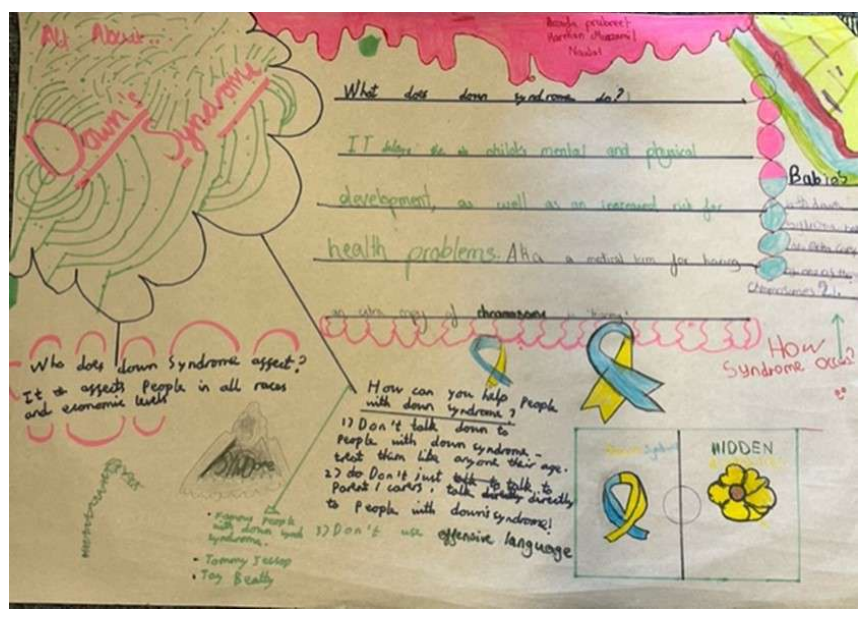 All About..
Down's
Syndrome
Harman
What does down syndrome do?
IT delays the child's mental and physical
development, as well as an increased risk for
health problems. Aka a medical term for having
an extra copy of chromosome
Babies
with down
syndrome
an extra copy
chromosomes 21.
How
Syndrome occurs?
Who does down Syndrome affect?
It affects People in all races
and economic levels
How can you help People
with down syndrome?
1) Don't talk down to
People with down syndrome -
treat them like anyone their age.
2) do Don't just talk to talk to
Parent / carers, talk directly directly
to People with down's syndrome!
3) Don't use offensive language
• Famous People
with down synd
syndrome.
• Tommy Jessop
• Tay Beatty
Down Syndrome
HIDDEN